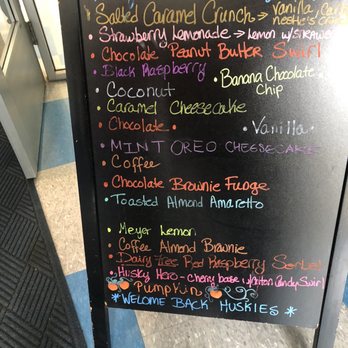 Salted Caramel Crunch → vanilla, Car
nestle's cr
Strawberry Lemonade → Lemon w/ STRAWBE
Chocolate Peanut Butter Swirl
Black Raspberry
• Banana Chocolate
Chip
• Coconut
• Caramel Cheesecake
• Chocolate •
• Vanilla •
• MINT OREO CHEESECAKE
• Coffee
• Chocolate Brownie Fudge
• Toasted Almond Amaretto
• Meyer Lemon
• Coffee Almond Brownie
• Dairy free Red Raspberry Sorbet
• Husky Hero - cherry base w/ Cotton Candy Swirl
• Pumpkin
*WELCOME BACK HUSKIES*